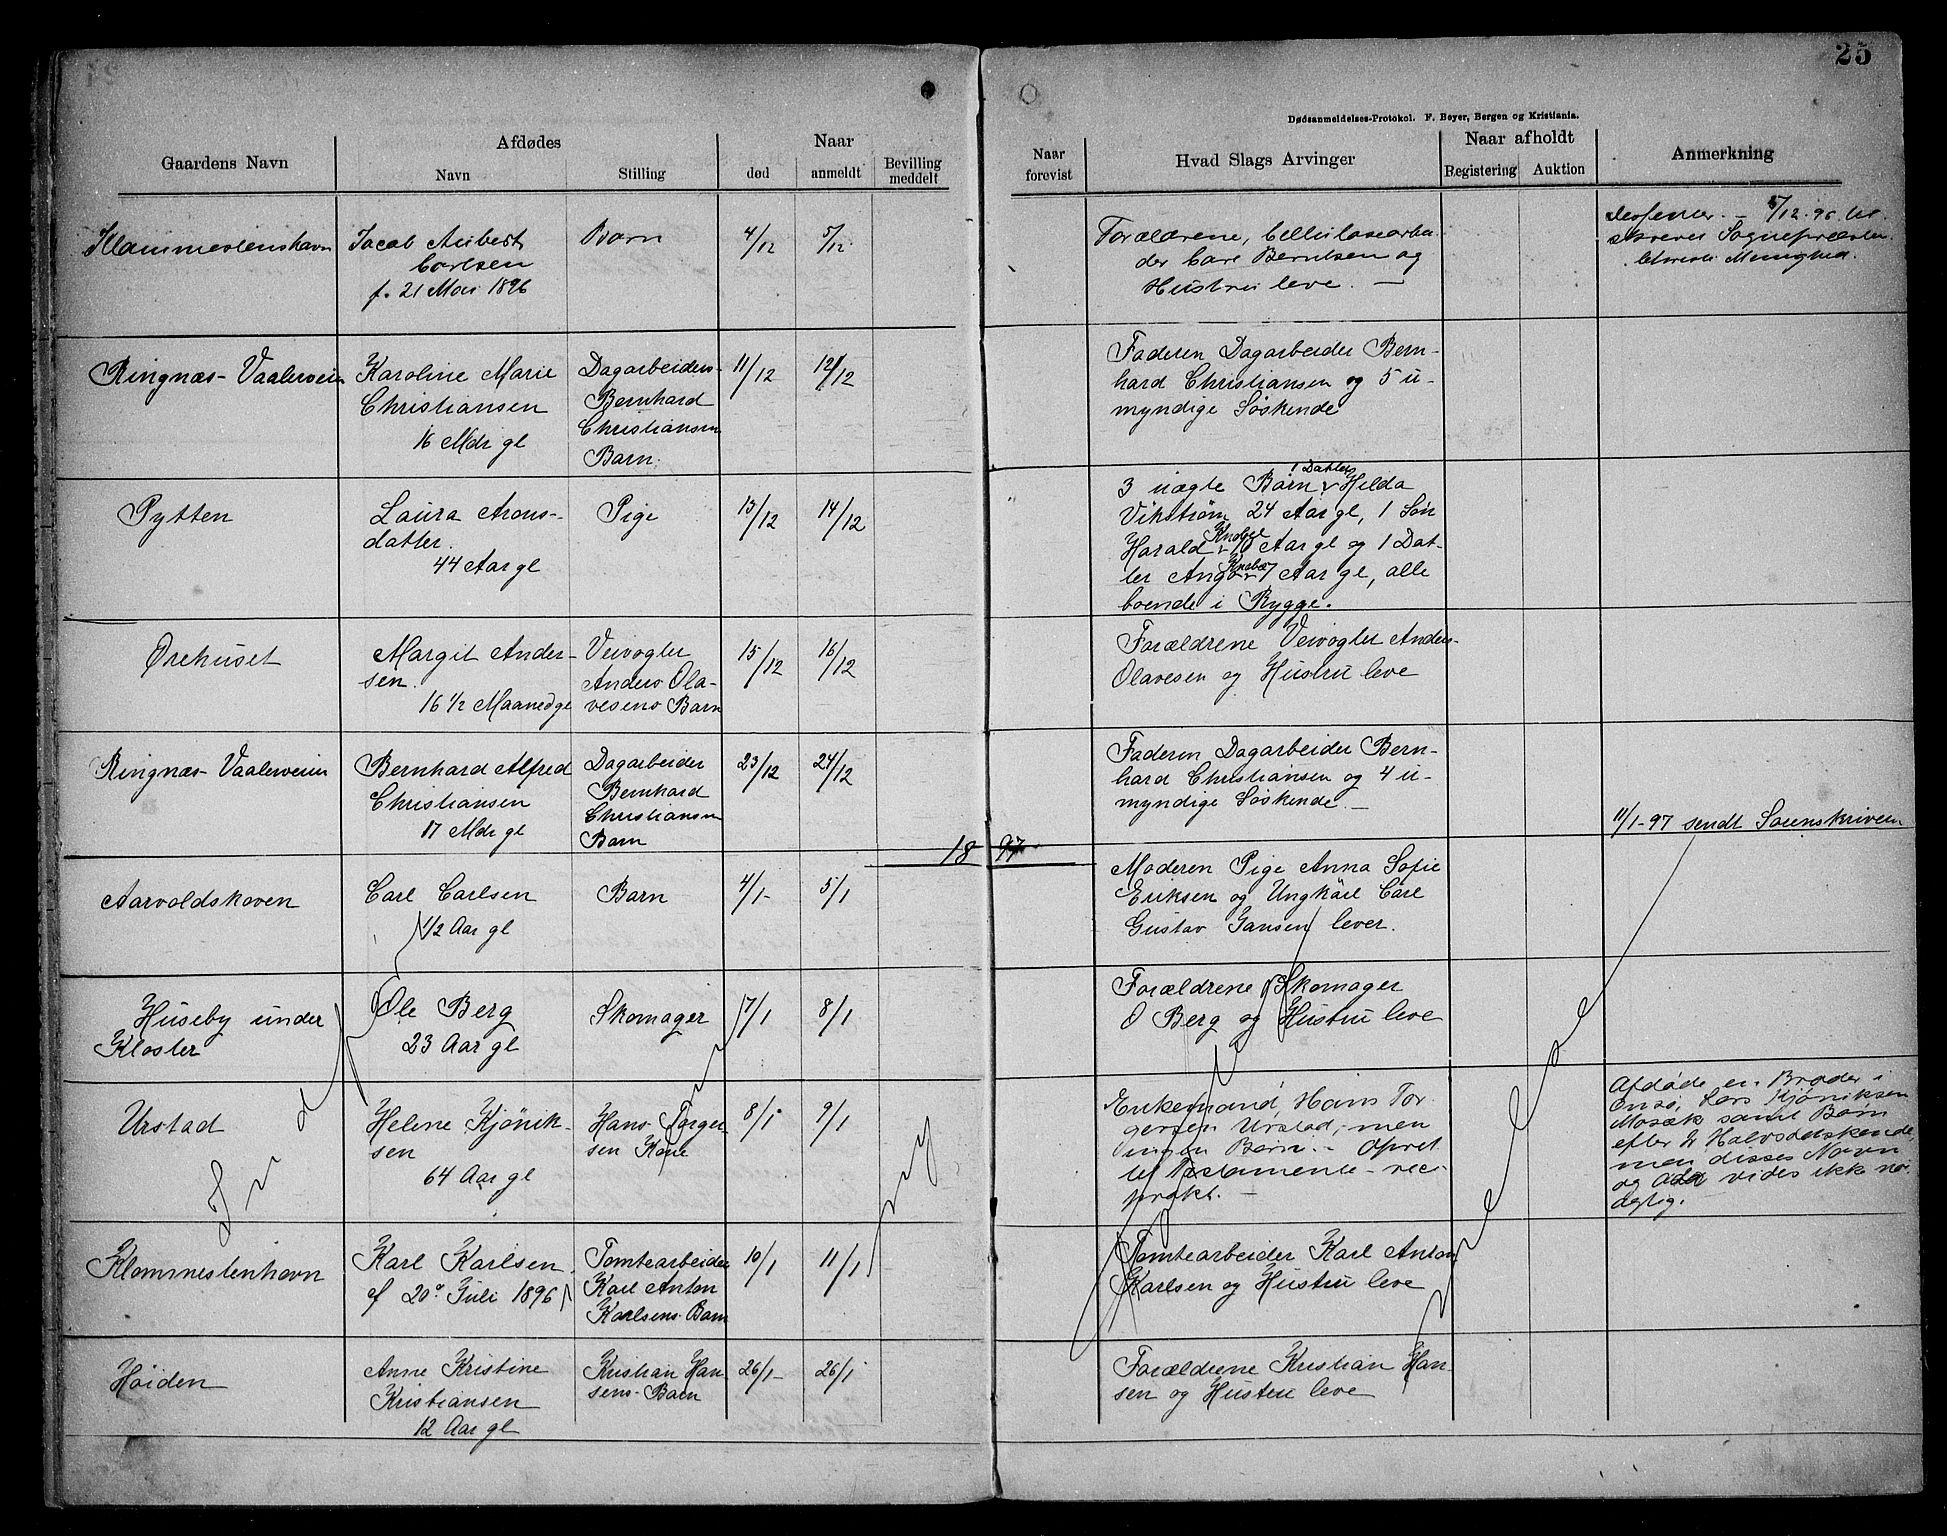 25
Dødsanmeldelses-Protokol. F. Beyer, Bergen og Kristiania.
Gaardens Navn
Afdødes
Navn
Stilling
Naar
død
anmeldt
Bevilling
meddelt
Naar
forevist
Hvad Slags Arvinger
Naar afholdt
Registering
Auktion
Anmerkning
Klommestenshavn
Jacob Aubert
Carlsen
f. 21 Mai 1896
Barn
4/12
5/12
Forældrene, Cellulosearbei
der Carl Berntsen og
Hustru leve. —
5/12. 96. til
Sognepræsten
Menighed.
Ringnæs- Vaalerveien
Karoline Marie
Christiansen
16 Mdr gl
Dagarbeiders
Bernhard
Christiansen
Barn.
11/12
12/12
Faderen Dagarbeider Bern-
hard Christiansen og 5 u-
myndige Søskende
Pytten
Laura Arons-
datter.
44 Aar gl
Pige
13/12
14/12
1 Datter
3 uægte Børn Hilda
Vikstrøm 24 Aar gl, 1 Søn
Harald Aar gl og 1 Dat-
ter 7 Aar gl, alle
boende i Rygge.
Ørehuset
Margit Ander-
sen.
16 1/2 Maaned gl
Veivogter
Anders Ola-
vesens Barn
15/12
16/12
Forældrene Veivogter Anders
Olavesen og Hustru leve
Ringnæs- Vaalerveien
Bernhard Alfred
Christiansen
17 Mdr gl
Dagarbeider
Bernhard
Christiansen
Barn
23/12
24/12
Faderen Dagarbeider Bern-
hard Christiansen og 4 u-
myndige Søskende. —
11/1-97 sendt Sorenskriveren
18 97
Aarvoldskoven
Carl Carlsen
1/2 Aar gl
Barn
4/1-
5/1
Moderen Pige Anna Sofie
Eriksen og Ungkarl Carl
Gustav Jansen lever.
Huseby under
Kloster
Ole Berg
23 Aar gl
Skomager
7/1
8/1
Forældrene Skomager
O Berg og Hustru leve
Urstad
Helene Kjønik-
sen
64 Aar gl
Hans Torger-
sen Kone
8/1
9/1
Enkemand, Hans Tor-
gersen Urstad, men
ingen Børn. - Opret
tet Testamente - reci
prokt. —
Afdøde en Broder i
Onsø, Lars Kjøniksen
Mosæk samt Børn
efter 2 Halvsødskende
men disses Navn
og vides ikke nø-
agtig.
Klommestenhavn
Karl Karlsen
f 20 Juli 1896
Tomtearbeider
Karl Anton
Karlsens Barn
10/1
11/1
Tomtearbeider Karl Anton
Karlsen og Hustru leve
Høiden
Anne Kristine
Kristiansen
12 Aar gl
Kristian Han
sens Barn
26/1-
26/1
Forældrene Kristian Han-
sen og Hustru leve